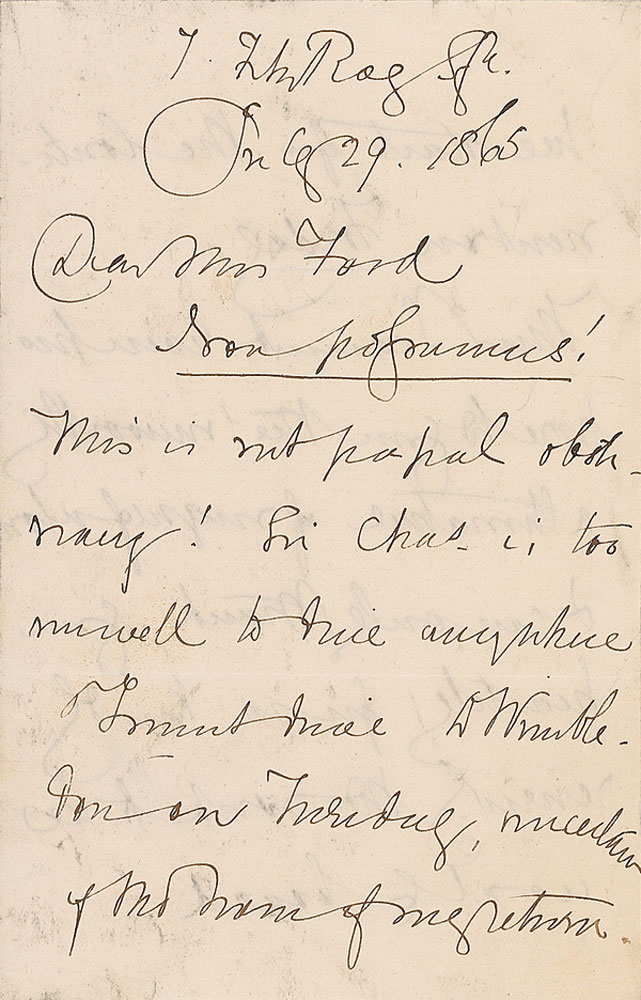 7. Fitz Roy Sqre.
July 29. 1865
Dear Mrs Ford
Non possumus!
This is not papal obsti-
nacy! Sir Chas. is too
unwell to dine anywhere
& I must drive to Wimble-
don on Tuesday, uncertain
of the hour of my return.